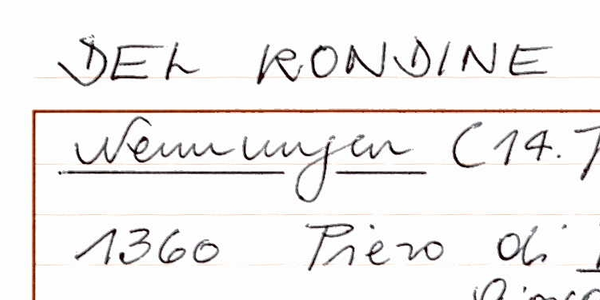 DEL RONDINE
Nennungen (14.
1360 Piero di